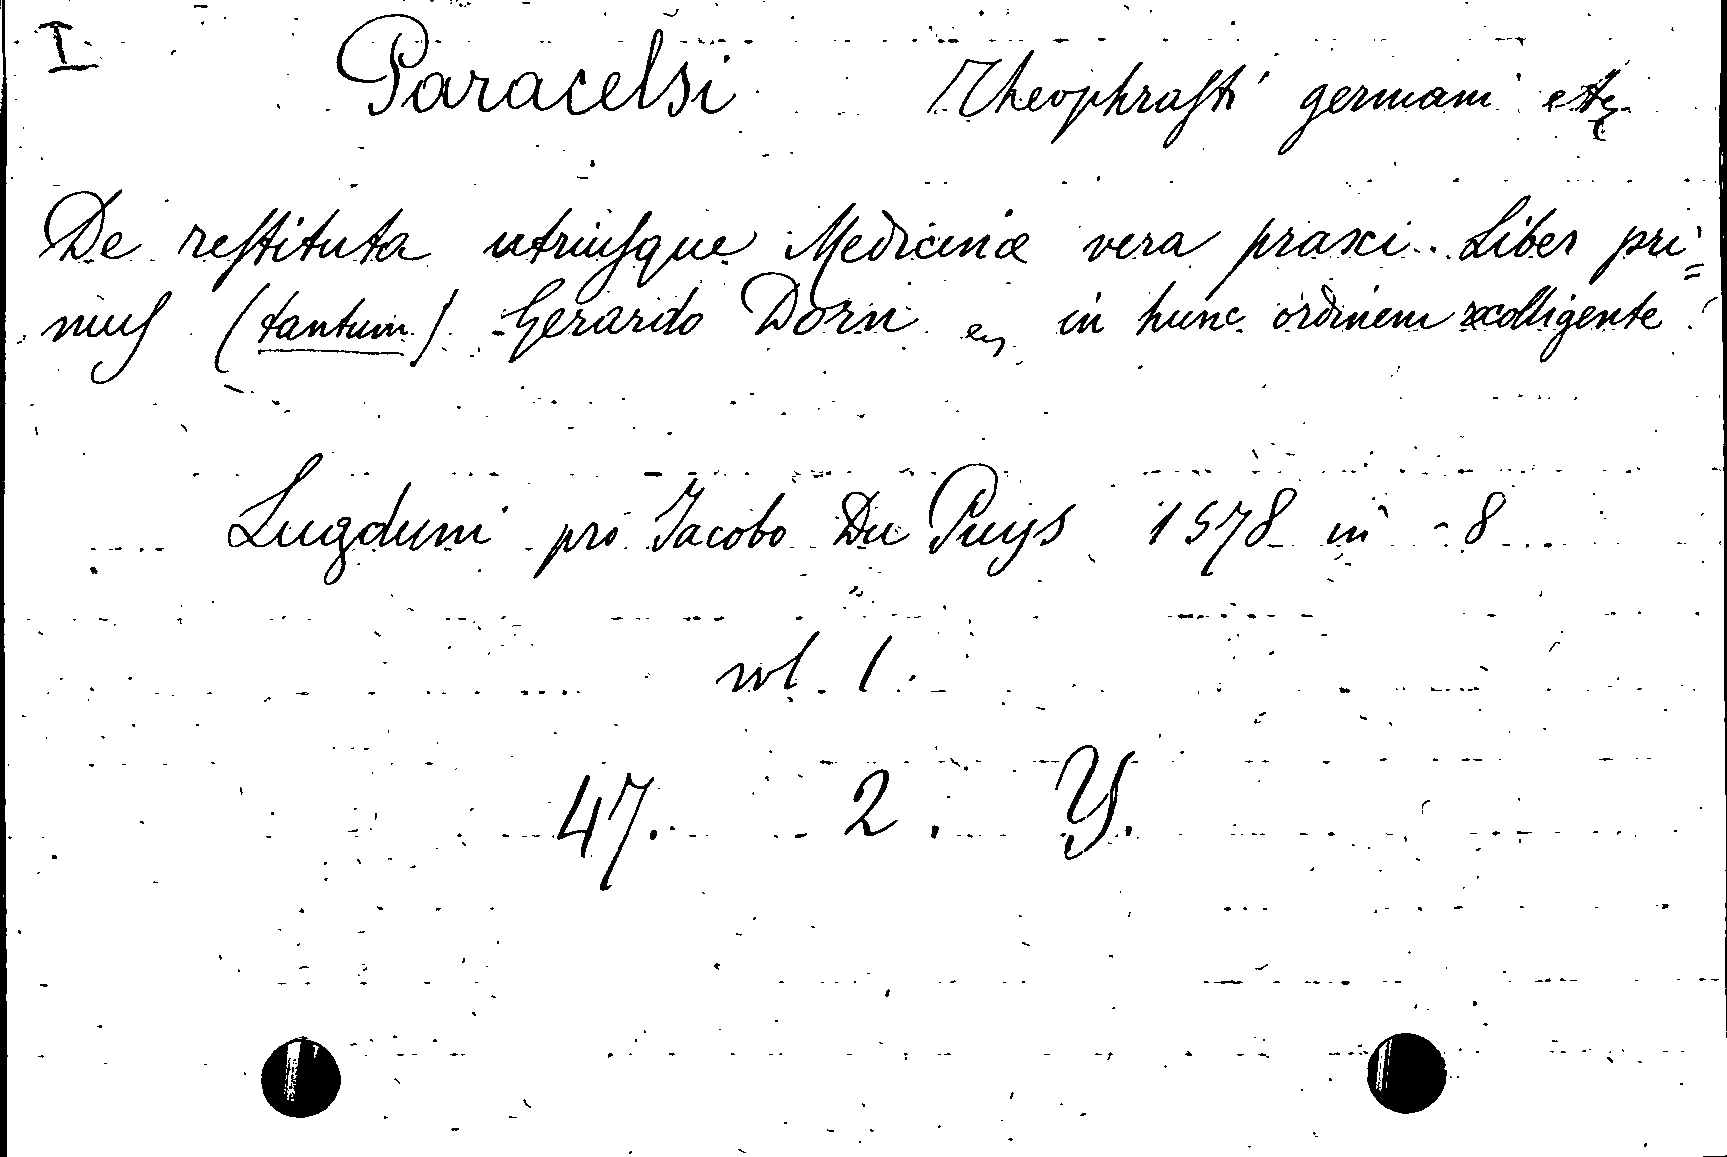 I
Paracelsi Theophrasti germani etc
De restituta utriusque Medicinæ vera praxi. Liber pri=
mus (tantum) Gerardo Dorn in hunc ordinem colligente
Lugduni pro Jacobo Du Puys 1578 in -8
vol. 1.
47. 2. Y.